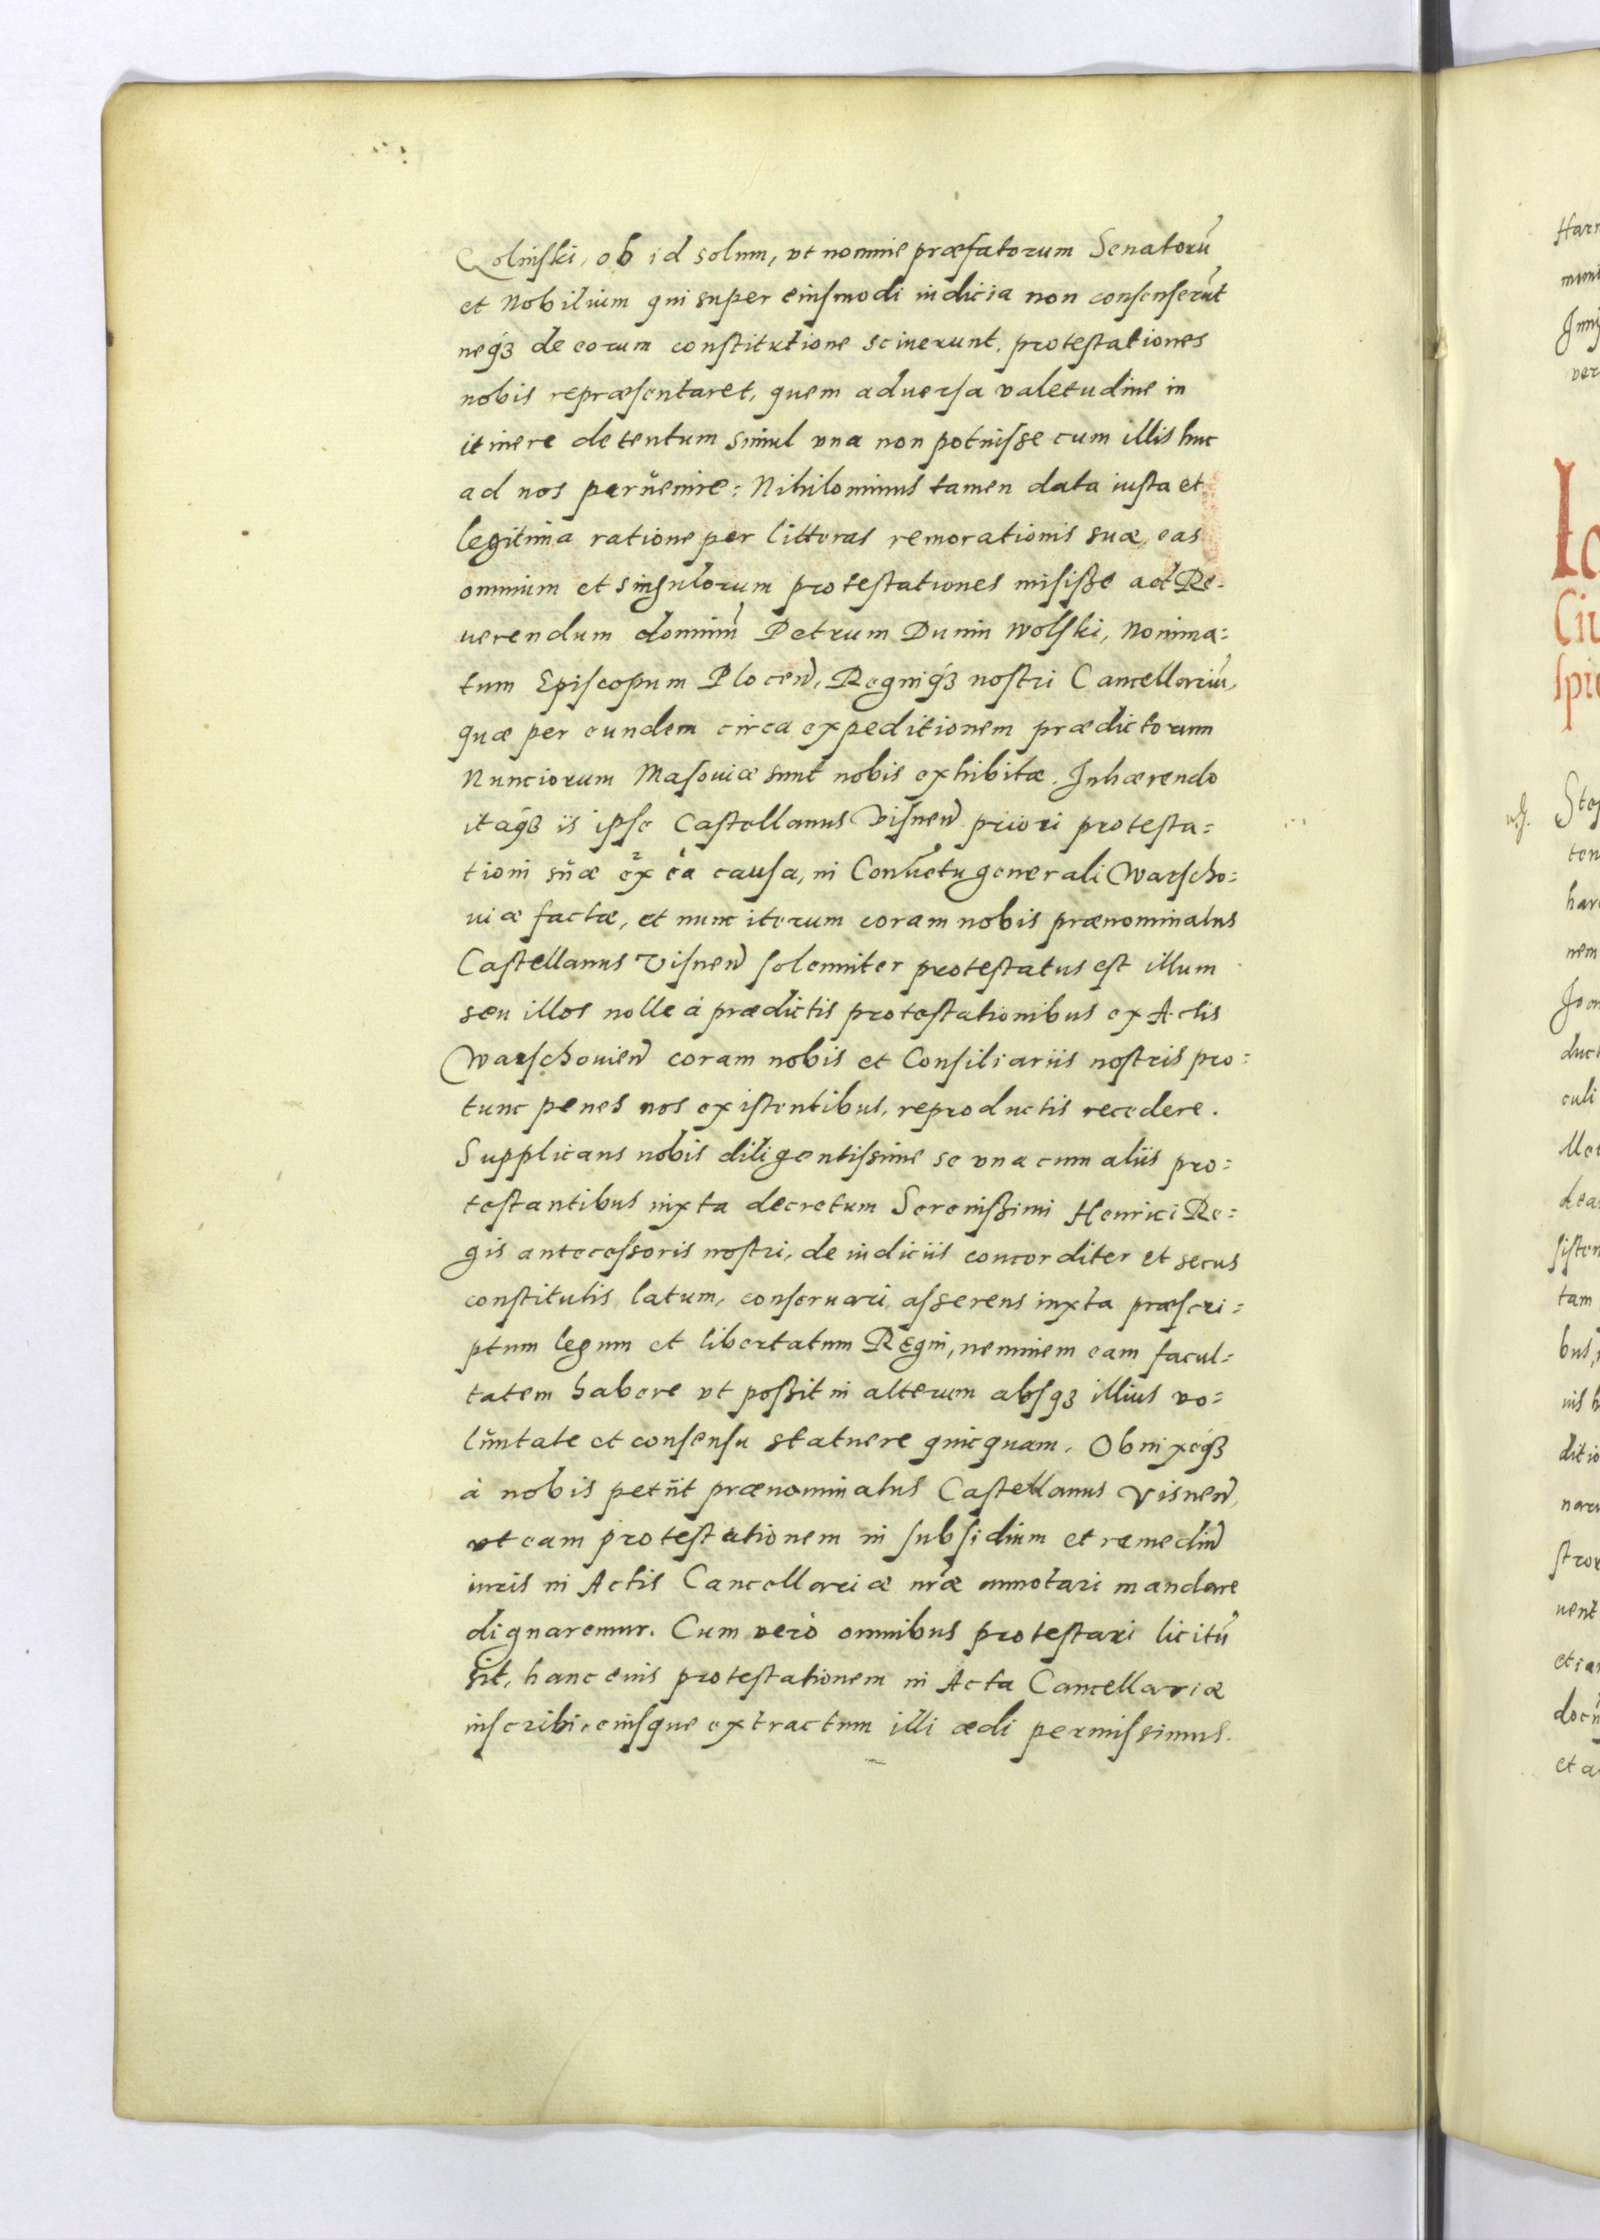 Qolinski, ob id solum, vt nomine præfatorum Senatorũ
et Nobilium qui super eiusmodi iudicia non consenserũt
neqȝ de eorum constitutione sciuerunt, protestationes
nobis repræsentaret, quem aduersa valetudine in
itinere detentum simul vna non potuisse cum illis huc
ad nos peruenire: Nihilominus tamen data iusta et
legitima ratione per litteras remorationis suæ, eas
omnium et singulorum protestationes misisse ad Re-
uerendum dominũ Petrum Dunin Wolski, Nomina=
tum Episcopum Plocen̄, Regniqȝ nostri Cancellariũ,
quæ per eundem circa expeditionem prædictorum
Nunciorum Masouiæ sunt nobis exhibitæ. Inhærendo
itaqȝ is ipse Castellanus Visnen̄ priori protesta=
tioni suæ ex ea causa, in Conuetu generali Warscho=
uiæ factæ, et nunc iterum coram nobis prænominatus
Castellanus Visnen̄ solenniter protestatus est illum
seu illos nolle à prædictis protestationibus ex Actis
Warschouien̄ coram nobis et Consiliariis nostris pro=
tunc penes nos existentibus, reproductis recedere.
Supplicans nobis diligentissime se vna cum aliis pro=
testantibus iuxta decretum Serenissimi Henrici Re=
gis antecessoris nostri, de iudiciis concorditer et secus
constitutis latum, conseruari, asserens iuxta præscri=
ptum legum et libertatum Regni, neminem eam facul=
tatem habere vt possit in alterum absqȝ illius vo=
luntate et consensu statuere quicquam. Obnixeqȝ
à nobis petiit prænominatus Castellanus Visnen̄,
vt eam protestationem in subsidium et remediũ
iuris in Actis Cancellariæ nr̄æ annotari mandare
dignaremur. Cum verò omnibus protestari licitũ
sit, hanc eius protestationem in Acta Cancellariæ
inscribi, eiusque extractum illi ædi permissimus.